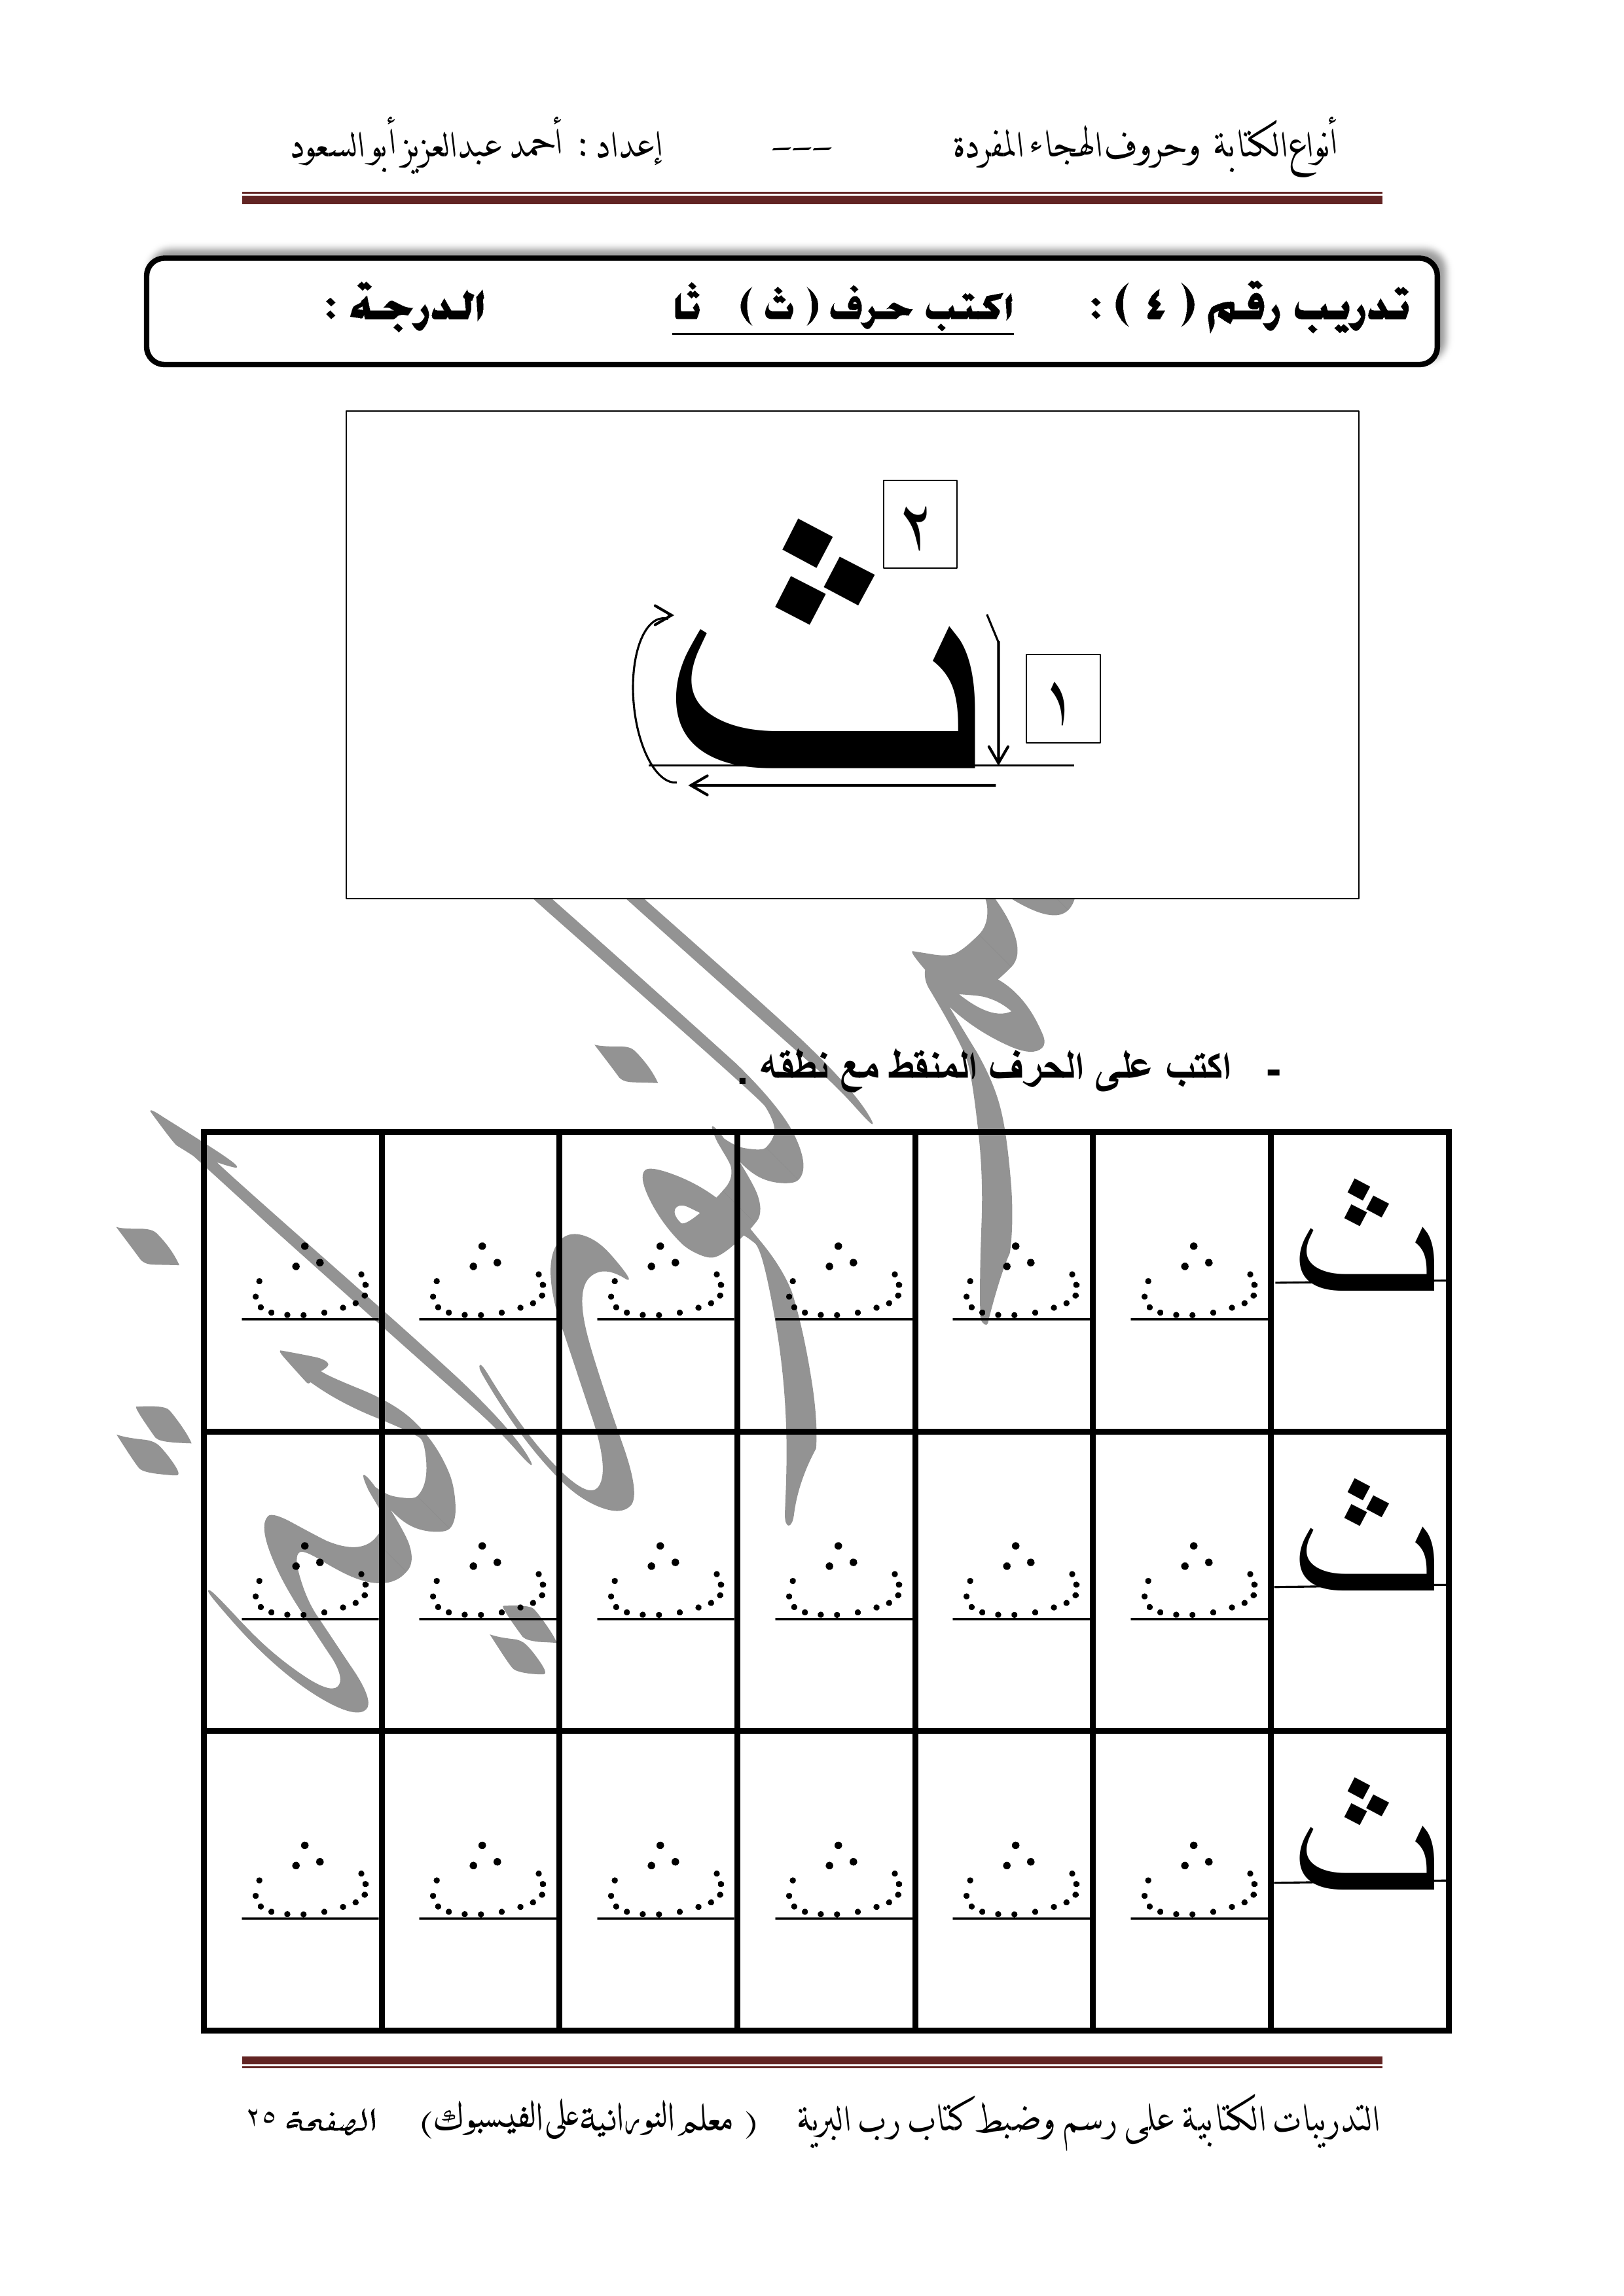 أنواع الكتابة وحروف الهجاء المفردة --- إعداد : أحمد عبدالعزيز أبو السعود
تدريب رقم ( ٤ ) : اكتب حرف ( ث ) ثا الدرجة :
٢
ث
١
- اكتب على الحرف المنقط مع نطقه .
ث ث ث ث ث ث ث
ث ث ث ث ث ث ث
ث ث ث ث ث ث ث
التدريبات الكتابية على رسم وضبط كتاب رب البرية ( معلم النورانية على الفيسبوك) الصفحة ٢٥